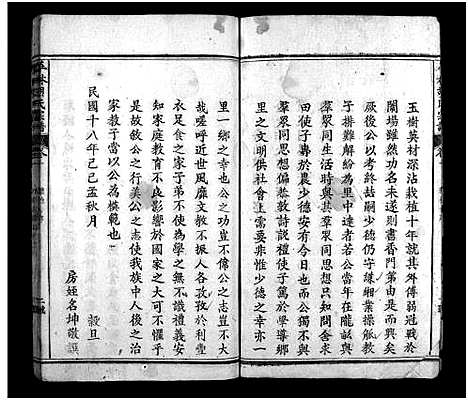 玉樹英材深沾栽植十年就其外傅弱冠戰於
闈場雖然功名未遂則書香門第由是而興矣
厥後公以考終喆嗣少德仍守緗業操觚教
子兼以解紛為里中達者若公當年在隴畝與
羣眾同生活時與其羣眾同思想只知問舍求
田使子弗於農少德安有今日也而公不與
羣眾同思想偏老教詩說禮使子篤於學導鄉
里之文明供社會上需要非惟少德之幸亦一
里一鄉之幸也公之功豈不偉公之志豈不大
哉嗟呼近世風靡文教不振人各孜孜於利
衣足食之家子弟不使為學之無不識禮義安
家庭教育不良影響於國家之大可不懼乎
故敬公之行美公之志使我族中人後之治
家教子當以公為模範也
民國十八年己巳孟秋月
穀旦
房姪名坤敬譔